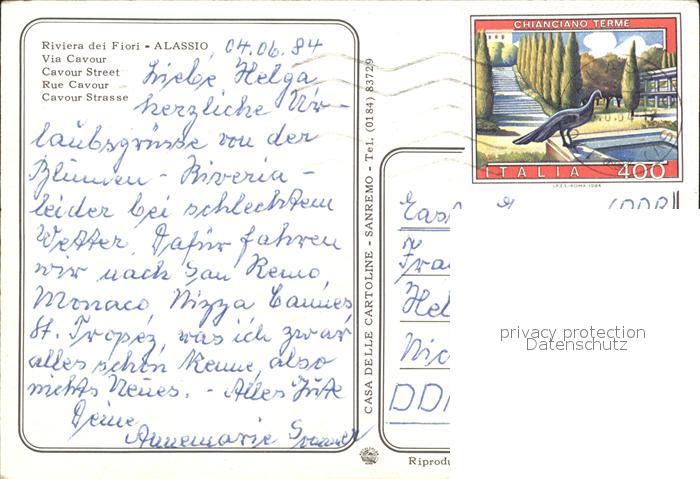 Riviera dei Fiori - ALASSIO
Via Cavour
Cavour Street
Rue Cavour
Cavour Strasse
04.06.84
Liebe Helga
herzliche Ur-
laubsgrüsse von der
Blumen - Riveria -
leider bei schlechtem
Wetter. Dafür fahren
wir nach San Remo,
Monaco, Nizza Cannes
St. Tropez, was ich zwar
alles schon kenne, also
nichts Neues. - Alles Gute
Deine
Annemarie
CASA DELLE CARTOLINE - SANREMO - Tel. (0184) 83729
CHIANCIANO TERME
ITALIA 400
I.P.Z.S.-ROMA 1984
(DDR)
Fra
Hel
Nic
DD
Riprodu
privacy protection
Datenschutz